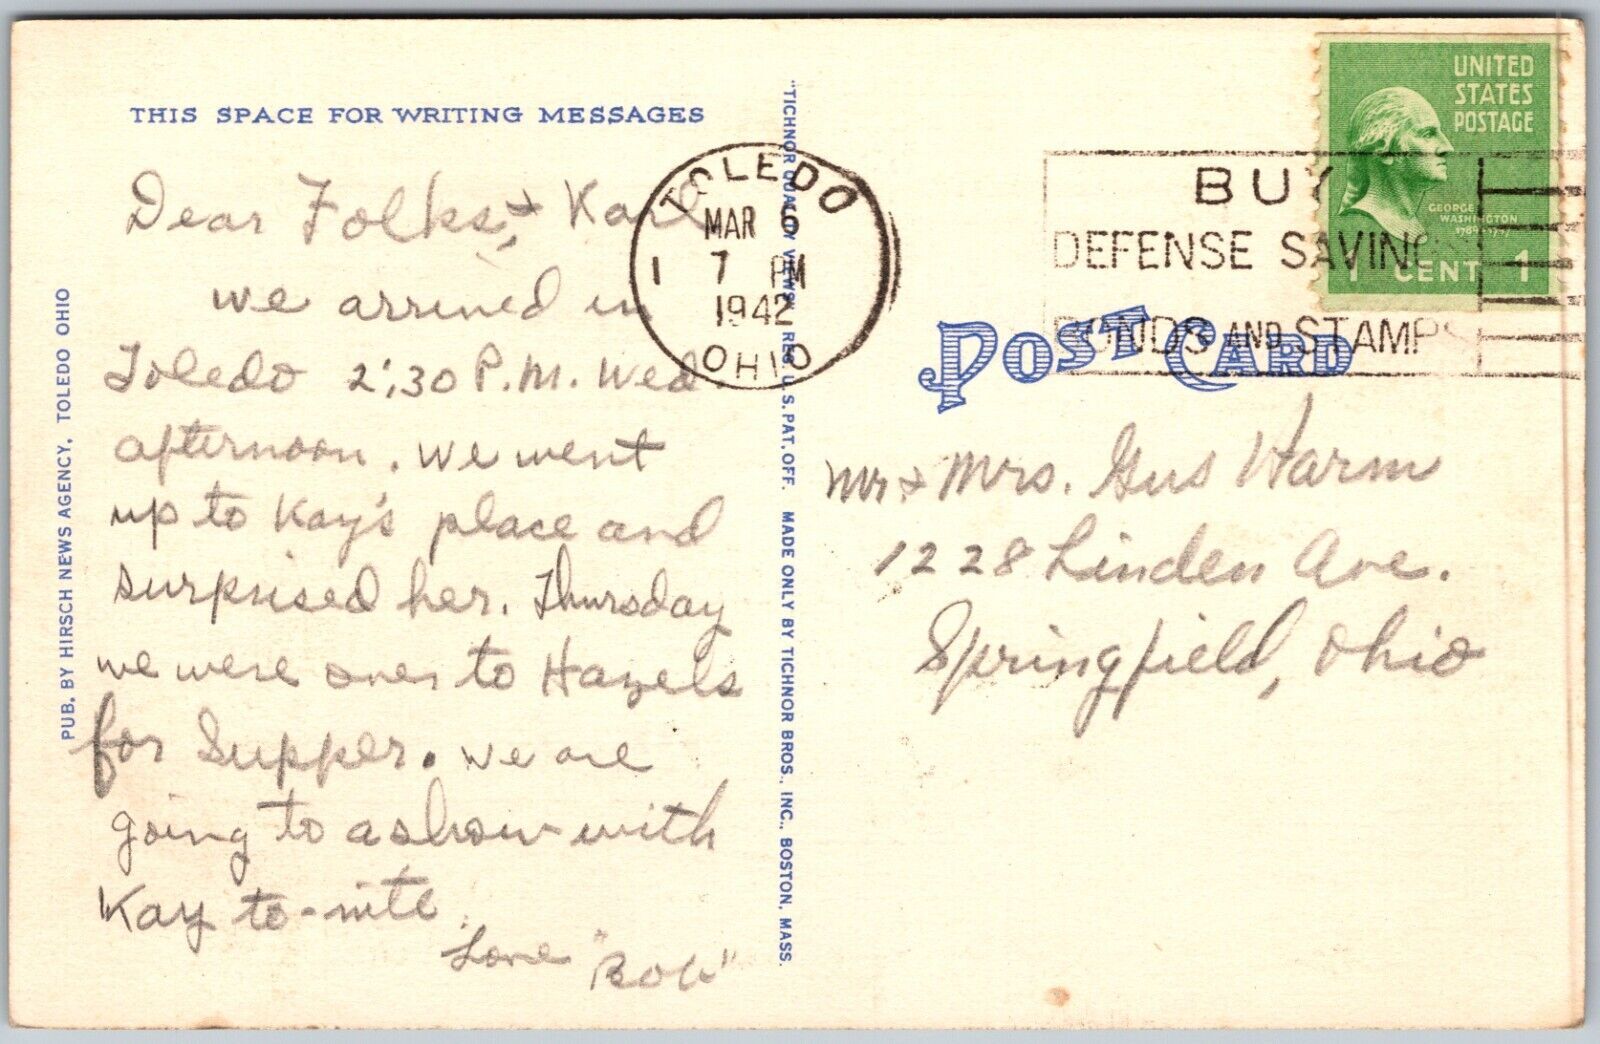 THIS SPACE FOR WRITING MESSAGES
Dear Folks, + Karl
we arrived in
Toledo 2:30 P.M. Wed
afternoon. We went
up to Kay's place and
surprised her. Thursday
we were over to Hazels
for Supper. We are
going to a show with
Kay to-nite.
Love "Bob"
PUB. BY HIRSCH NEWS AGENCY, TOLEDO OHIO
"TICHNOR QUALITY VIEWS," REG. U. S. PAT. OFF. MADE ONLY BY TICHNOR BROS., INC., BOSTON, MASS.
TOLEDO
MAR 6
7 PM
1942
OHIO
1
BUY
DEFENSE SAVINGS
BONDS AND STAMPS
UNITED
STATES
POSTAGE
GEORGE
WASHINGTON
1789-1797
1 CENT 1
POST CARD
Mr + Mrs. Gus Harm
1228 Linden Ave.
Springfield, Ohio